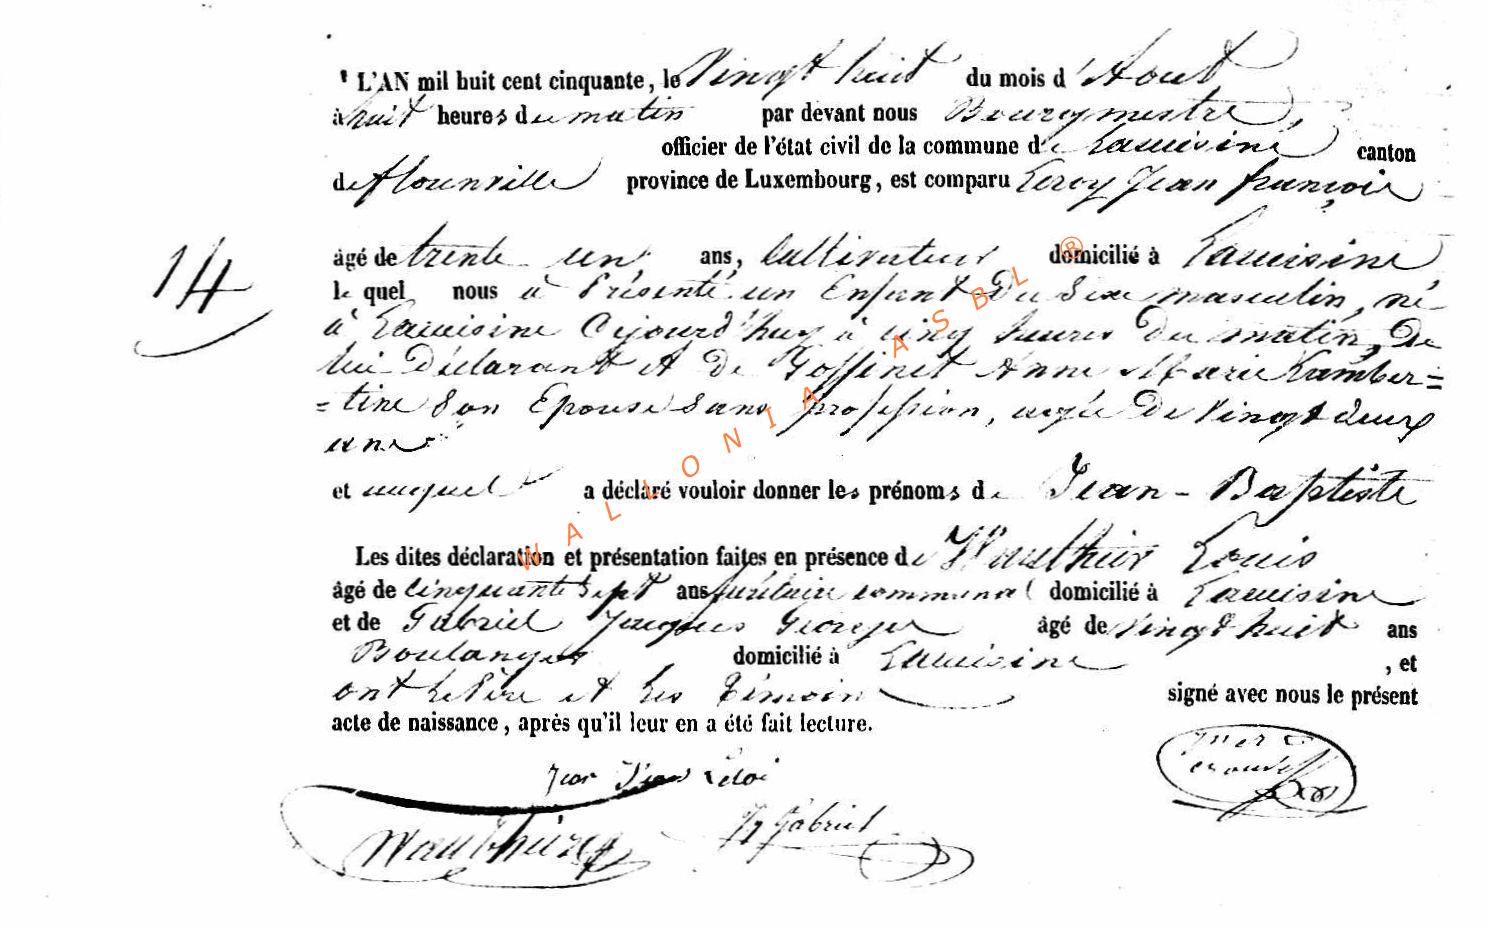 L'AN mil huit cent cinquante, le Vingt huit du mois d'Aout
à huit heures du matin par devant nous Bourgmestre,
officier de l'état civil de la commune de Lacuisine canton
de florenville province de Luxembourg, est comparu Leroy Jean françois
âgé de trente un ans, Cultivateur domicilié à Lacuisine
14
le quel nous à Présenté un Enfant du Sexe masculin, né
à Lacuisine Aujourd'huy à cinq heures du matin, De
lui Déclarant et De Goffinet Anne Marie Lamber=
=tine Son Epouse Sans profession, agée De Vingt deux
ans
et auquel a déclaré vouloir donner les prénoms de Jean-Baptiste
Les dites déclaration et présentation faites en présence de Wauthier Louis
âgé de cinquante sept ans secrétaire communal domicilié à Lacuisine
et de Gabriel Jacques Georges âgé de Vingt huit ans
Boulanger domicilié à Lacuisine, et
ont le Père et les Témoin signé avec nous le présent
acte de naissance, après qu'il leur en a été fait lecture.
Jean
Gabriel
WALLONIA ASBL ®